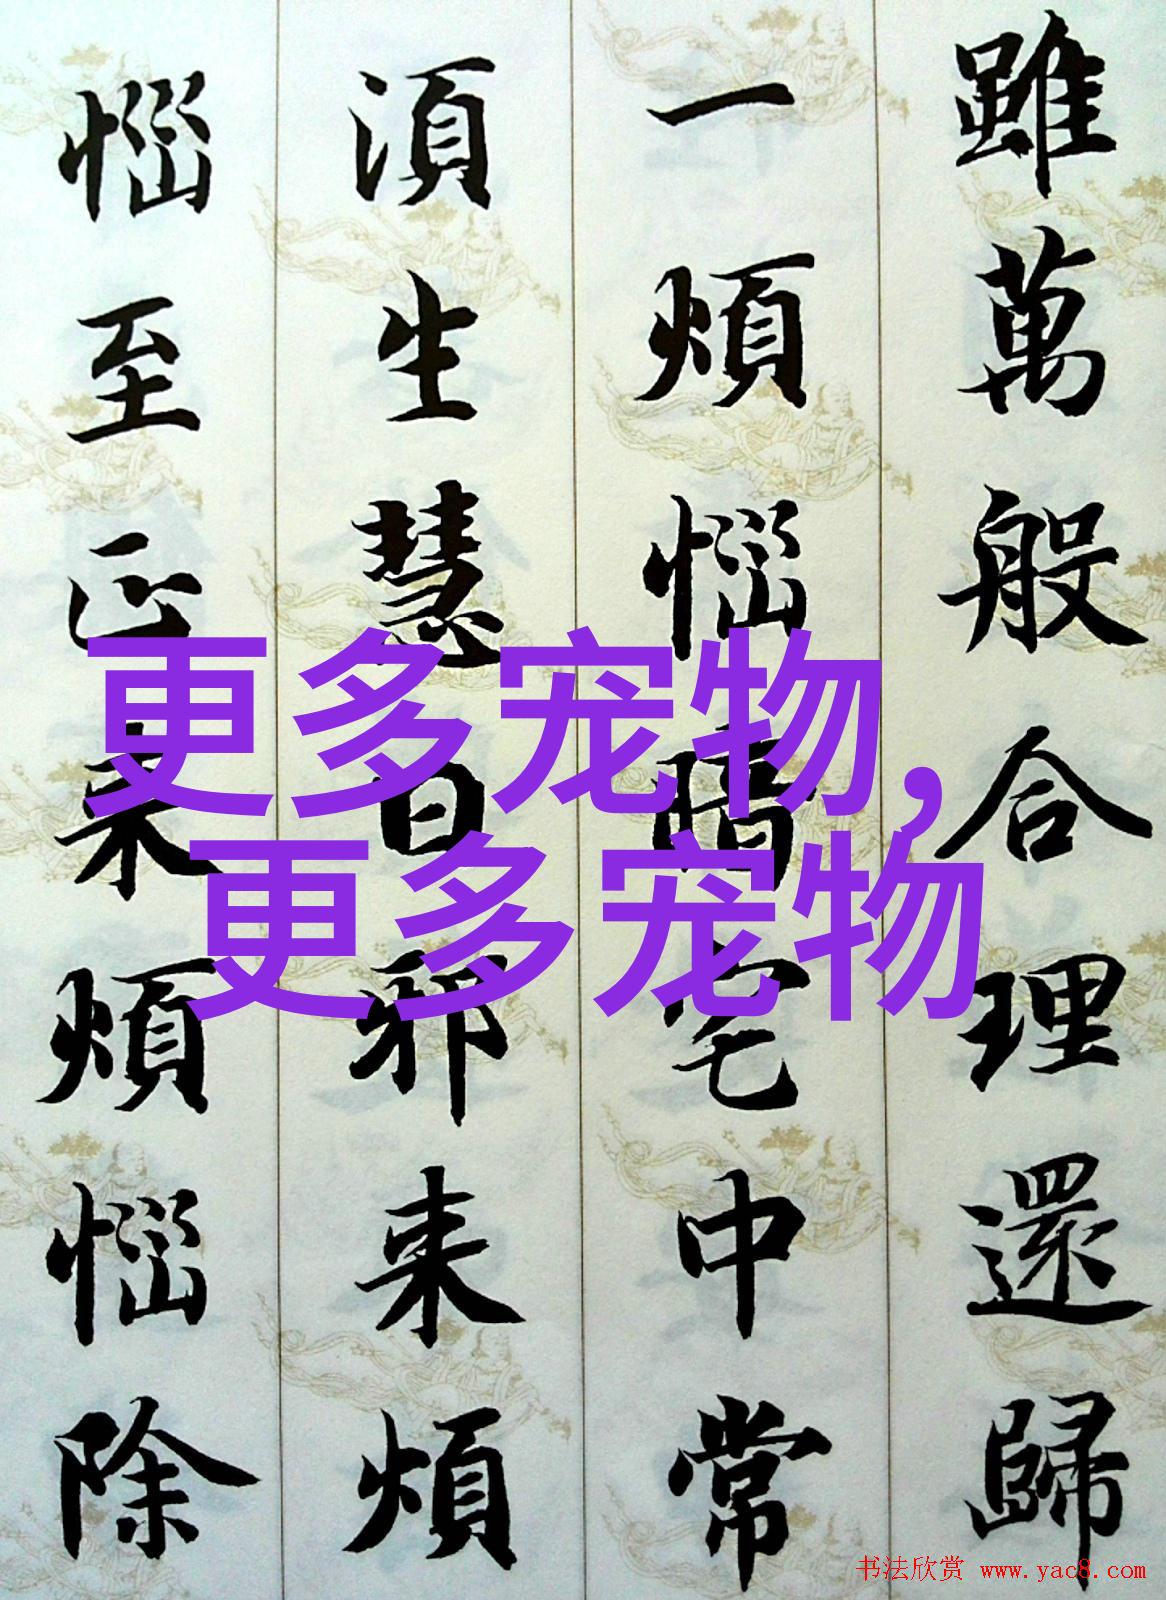 雖萬般合理還歸
一煩惱暗宅中常
湏生慧日邪来煩
惱至正来煩惱除
更多宠物,
更多宠物
书法欣赏 www.yac8.com